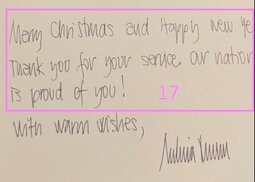 Merry Christmas and Happy New Ye
Thank you for your service, our nation
is proud of you!
17
with warm wishes,